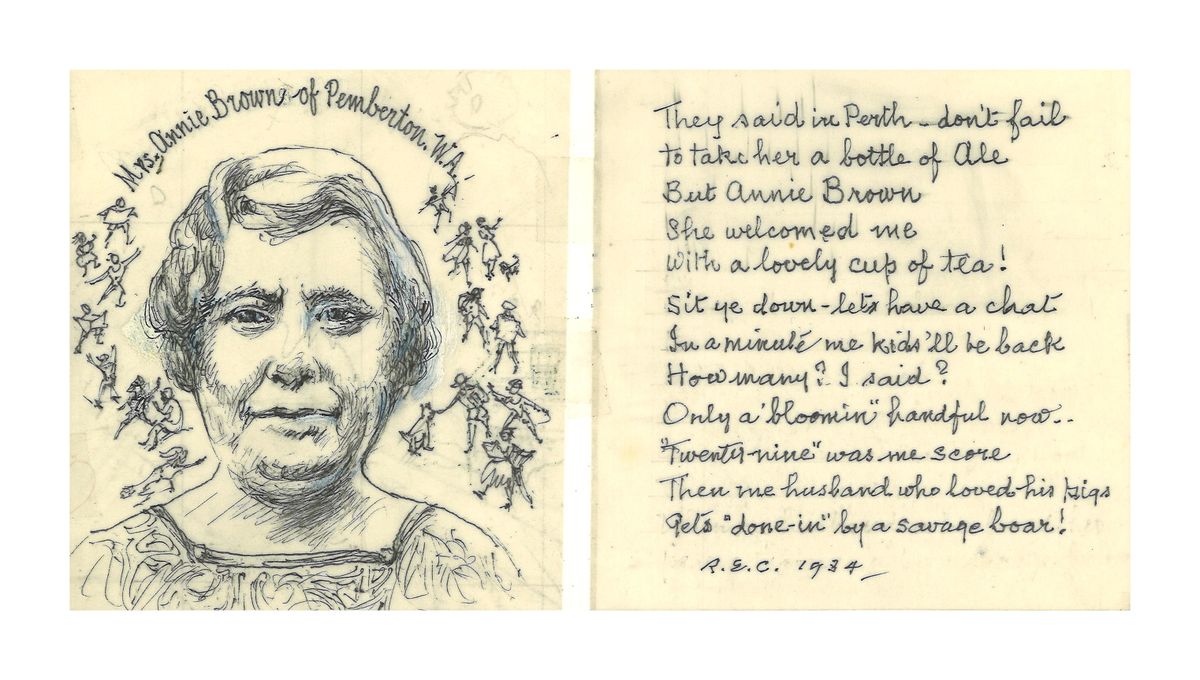 Mrs. Annie Brown of Pemberton. W.A.
They said in Perth - don't fail
to take her a bottle of Ale
But Annie Brown
She welcomed me
With a lovely cup of tea!
Sit ye down - lets have a chat
In a minute me kids'll be back
How many? I said?
Only a 'bloomin" handful now..
"Twenty-nine" was me score
Then me husband who loved his pigs
Gets "done-in" by a savage boar!
R.E.C. 1934